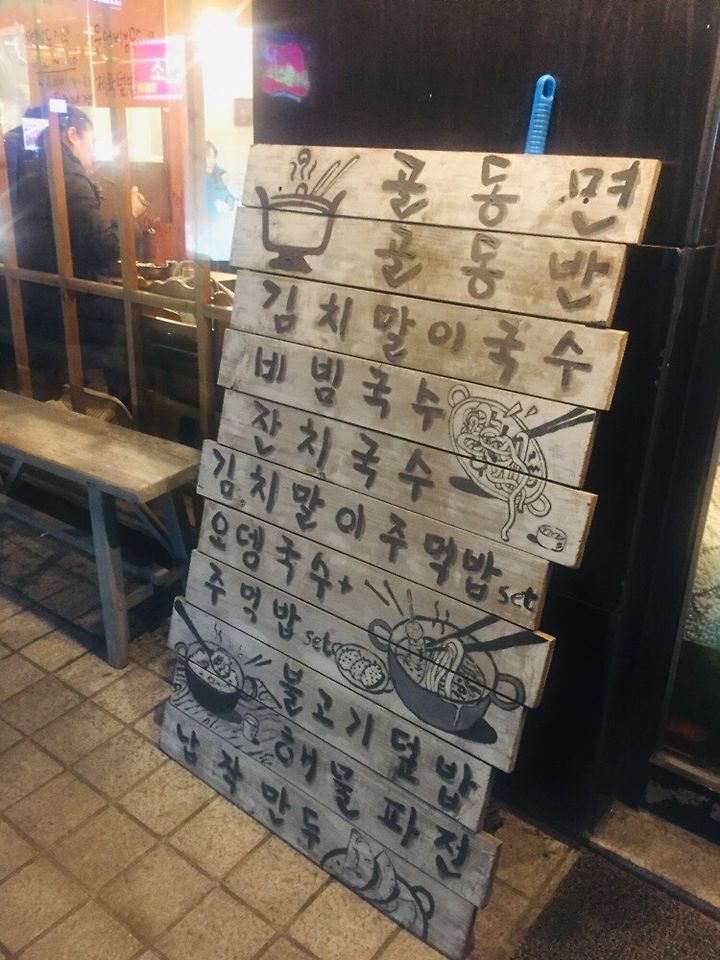 골동면
골동반
김치말이국수
비빔국수
잔치국수
김치말이주먹밥set
오뎅국수+
주먹밥set
불고기덮밥
해물파전
납작만두